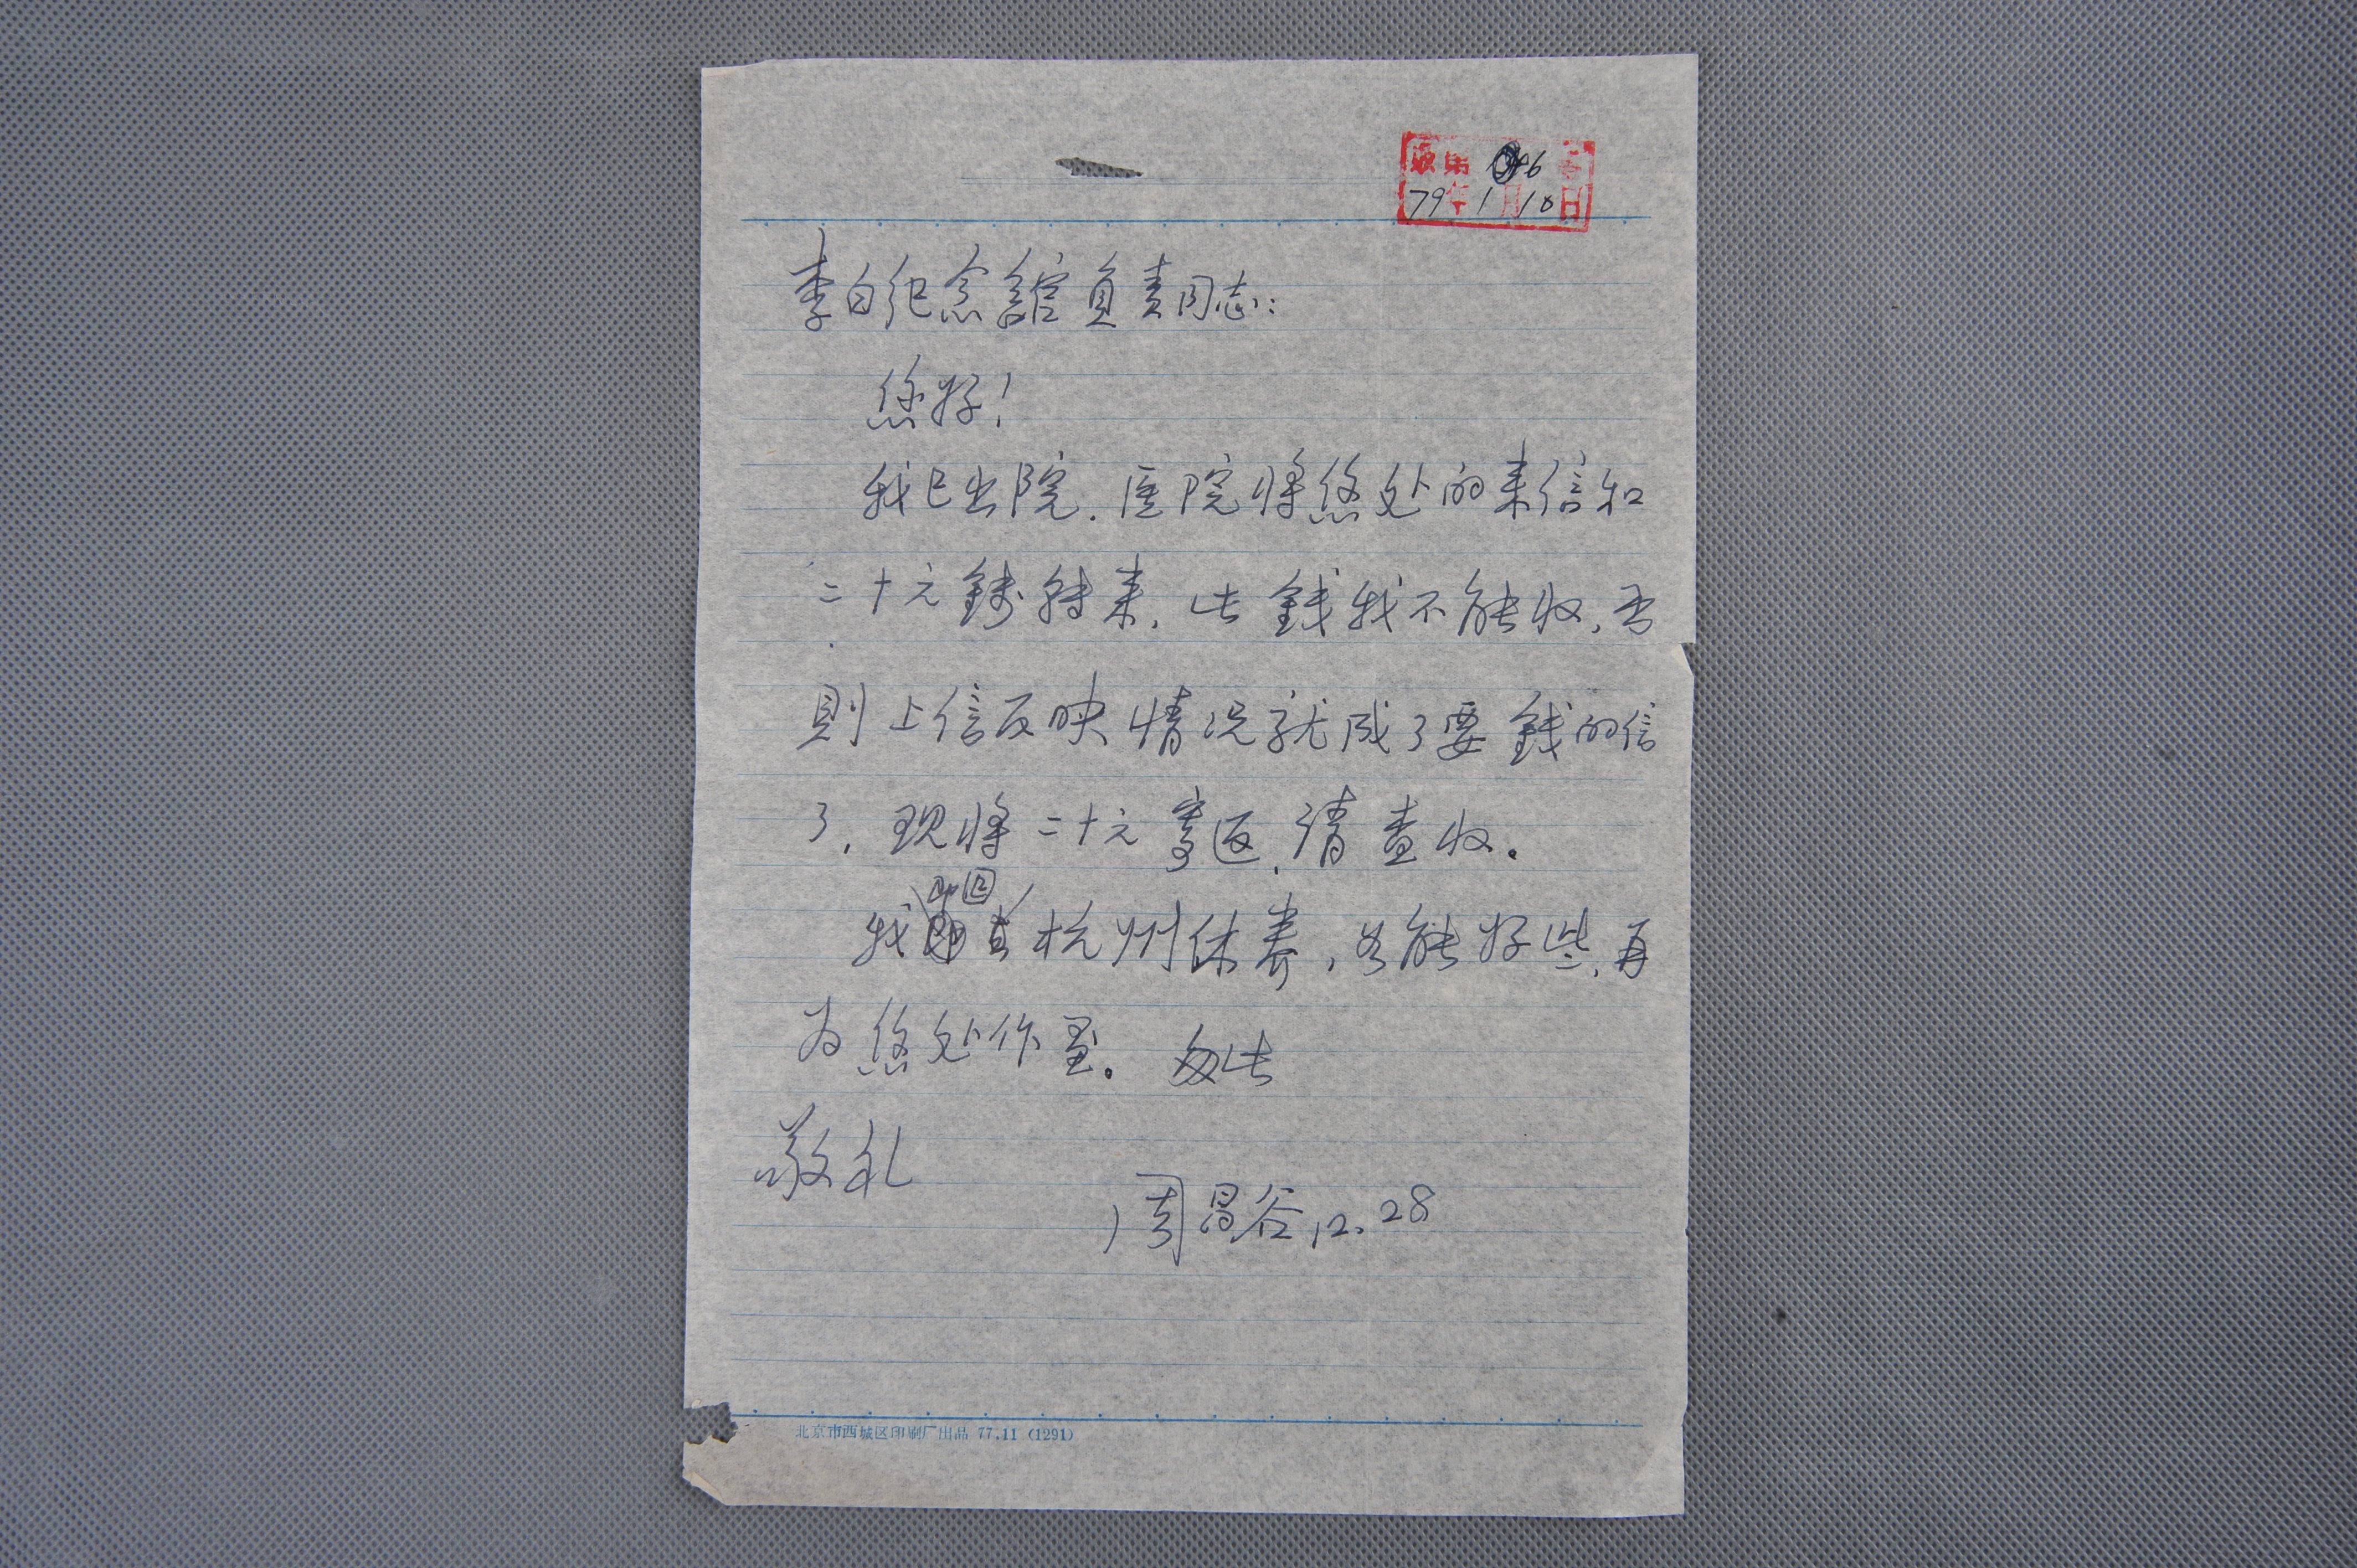 收第 46 号
79年1月10日
李白纪念館負责同志:
您好!
我已出院.医院将您处的来信和
二十元錢转来,此錢我不能收,否
則上信反映情况就成了要錢的信
了.现将二十元寄返,请查收。
即回
我 杭州休养,若能好些,再
为您处作画。匆此
敬礼
周昌谷 12.28
北京市西城区印刷厂出品 77.11 (1291)